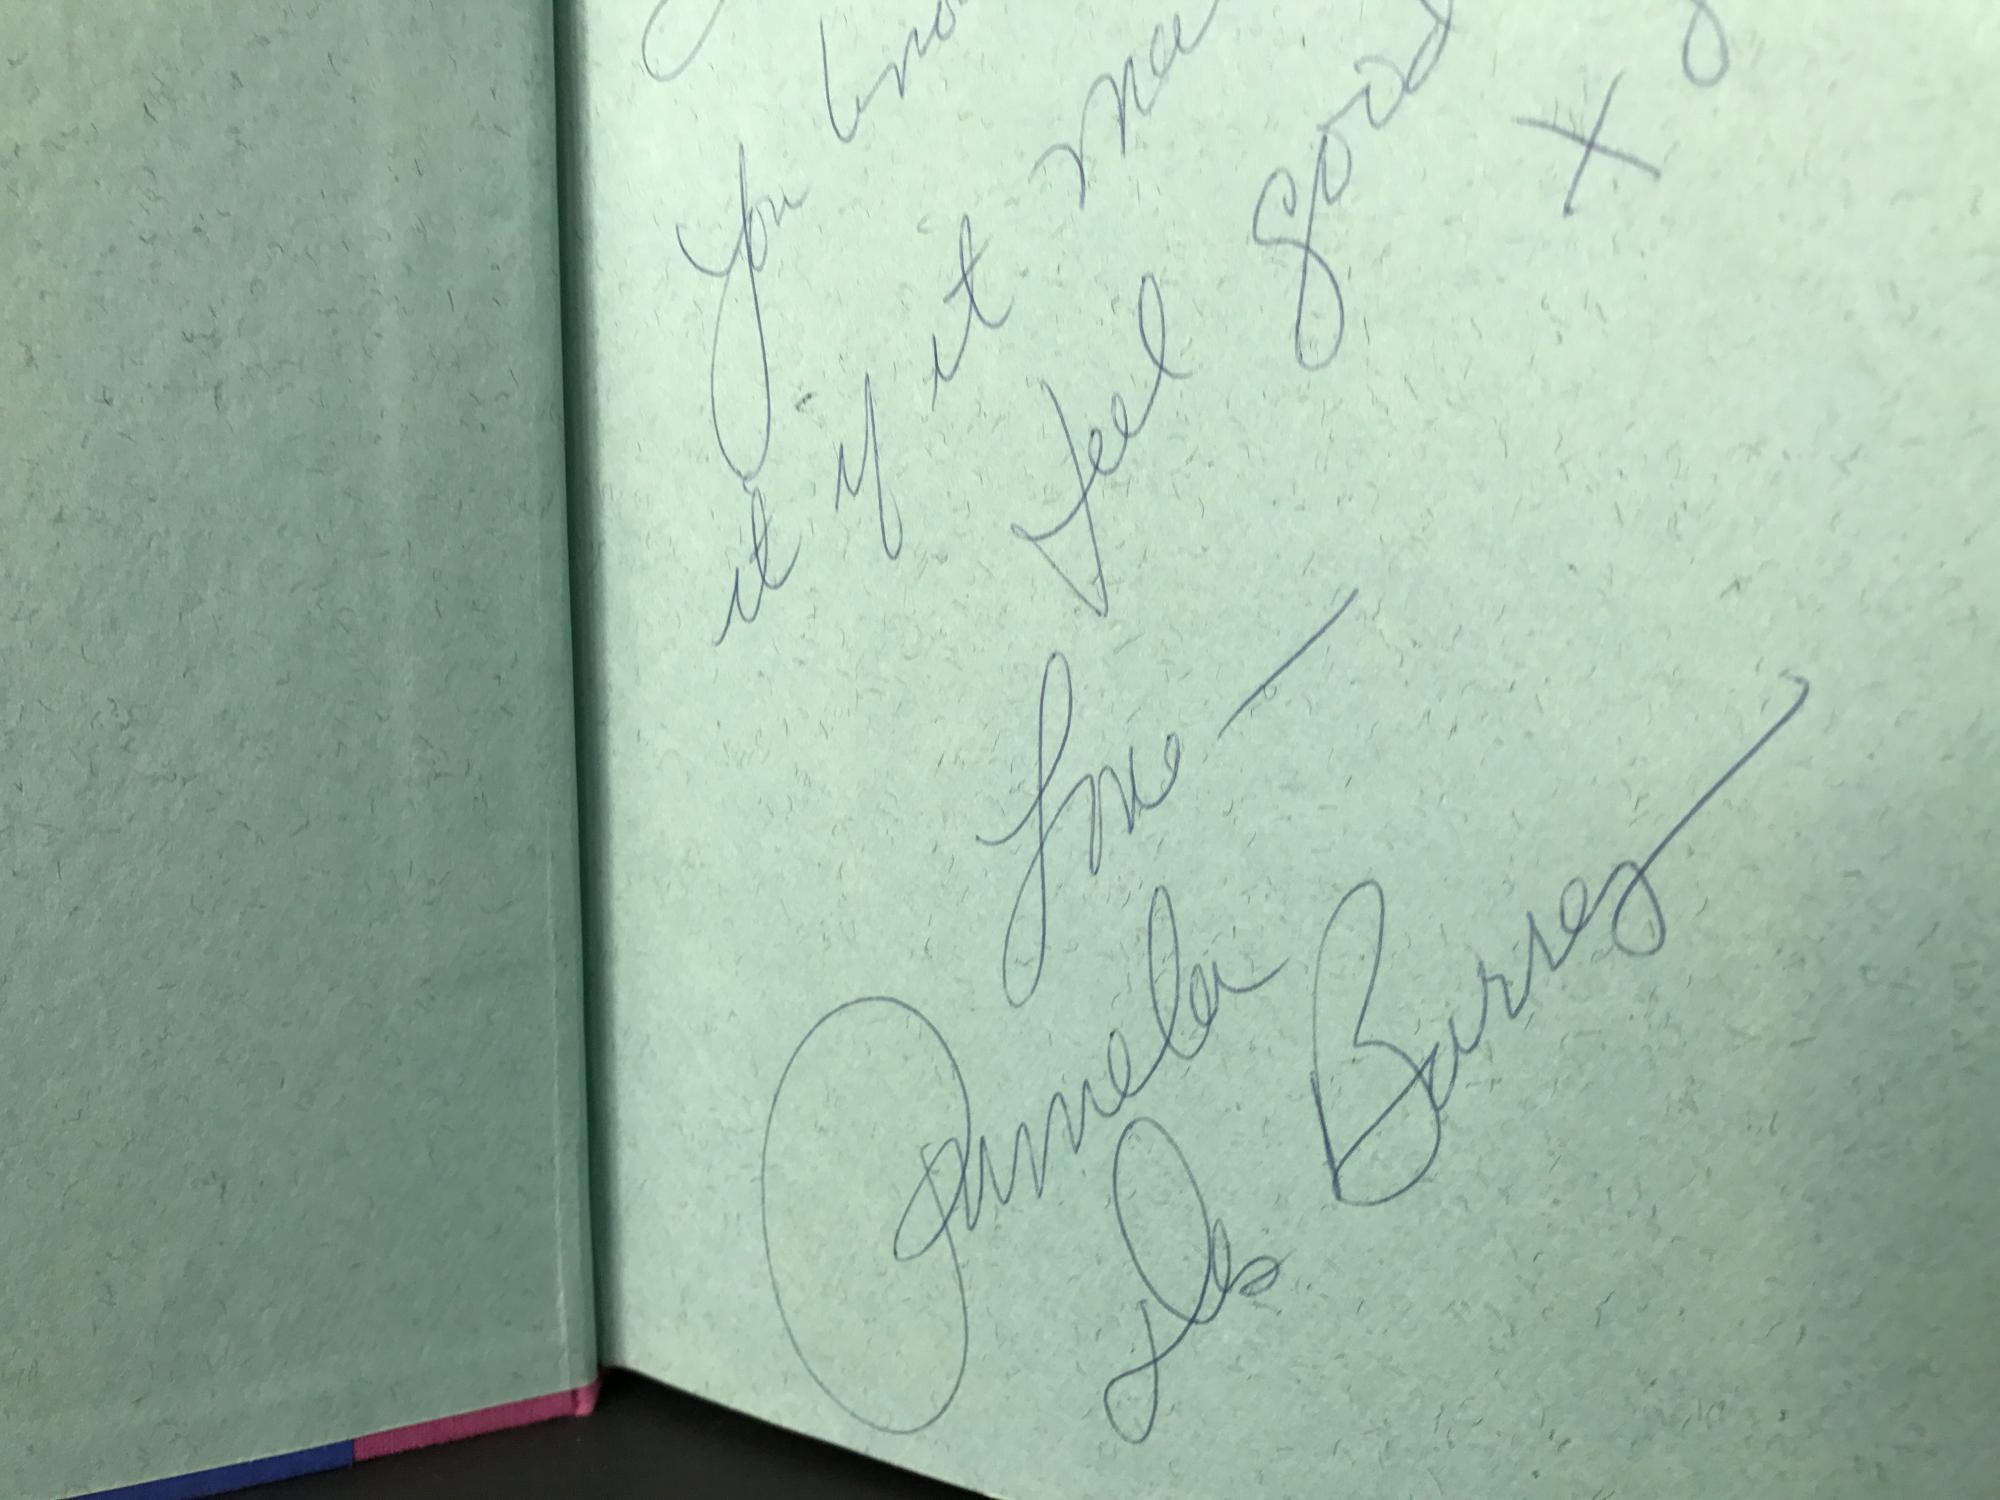 You
it if it
feel good
x
Love —
Pamela
Des Barres